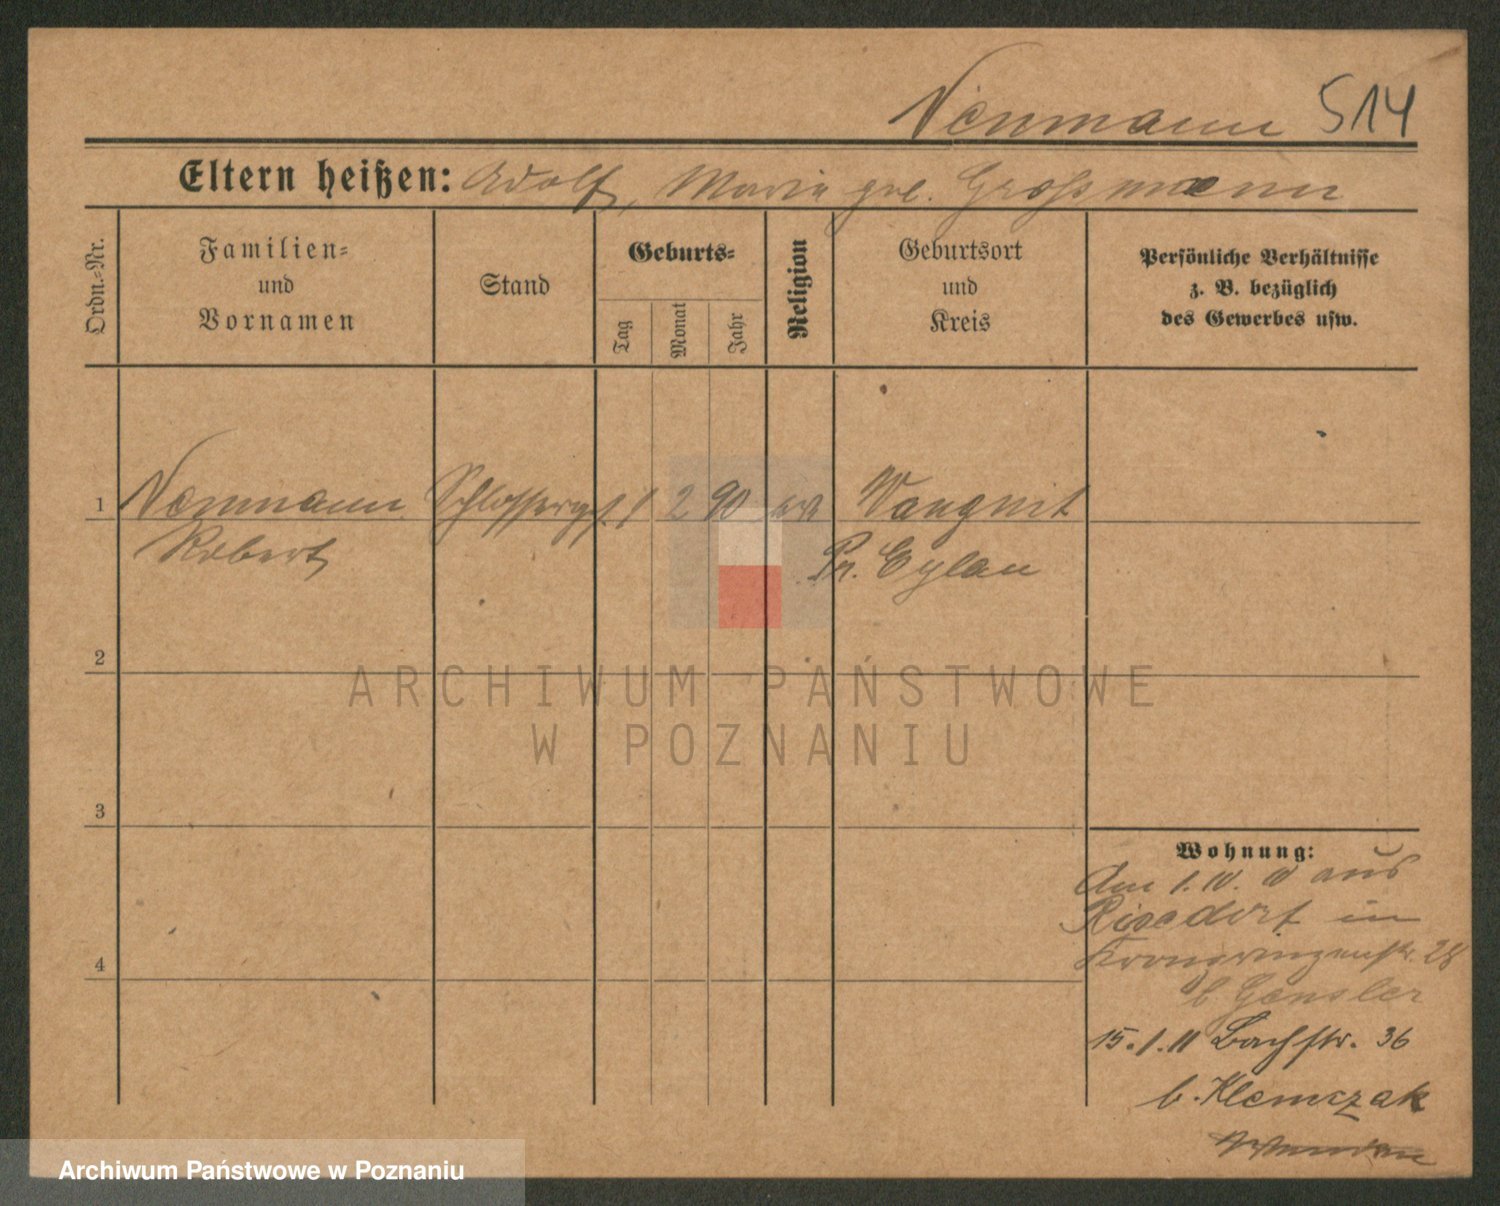 Neumann 514
Eltern heißen: Adolf, Maria geb. Grossmann
Ordn.=Nr.
Familien=
und
Vornamen
Stand
Geburts=
Tag
Monat
Jahr
Religion
Geburtsort
und
Kreis
Persönliche Verhältnisse
z. B. bezüglich
des Gewerbes usw.
1 Neumann Schlosserges. 1 2 90 ev Wangnit
Robert Pr. Eylau
2
3
4
Wohnung:
Am 1. IV. aus
in
Kronprinzenstr. 28
b Gensler
15.1.11 Bachstr. 36
b. Klemczak
ARCHIWUM PAŃSTWOWE
W POZNANIU
Archiwum Państwowe w Poznaniu